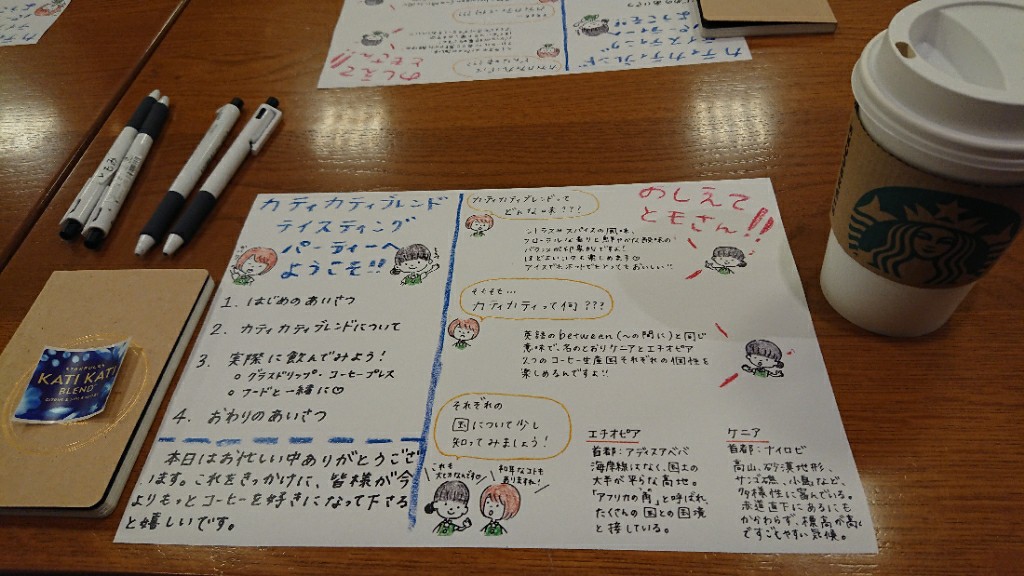 カティカティブレンド
テイスティング
パーティーへ
ようこそ!!
1. はじめのあいさつ
2. カティカティブレンドについて
3. 実際に飲んでみよう!
○ グラスドリップ・コーヒープレス
○ フードと一緒に♡
4. おわりのあいさつ
本日はお忙しい中ありがとうござ
います。これをきっかけに、皆様が今
よりもっとコーヒーを好きになって下さる
と嬉しいです。
カティカティブレンドって
どんな味???
おしえて
ともさん!!
シトラスやスパイスの風味、
フローラルな香りと華やかな酸味の
バランスが印象的です!
アイスでもホットでもとってもおいしい!!
そもそも…
カティカティって何???
英語のbetween(〜の間に)と同じ
意味で、名のとおりケニアとエチオピア
2つのコーヒー生産国それぞれの個性を
楽しめるんですよ!!
それぞれの
国について少し
知ってみましょう!
これも
大切なんです
ありますね!
エチオピア
首都:アディスアベバ
海岸線はなく、国土の
大半が平らな高地。
「アフリカの角」と呼ばれ
たくさんの国との国境
と接している。
ケニア
首都:ナイロビ
高山、砂漠地形、
サンゴ礁、小島など、
多様性に富んでいる。
赤道直下にあるにも
かかわらず、標高が高く
すごしやすい気候。
STARBUCKS
KATI KATI
BLEND